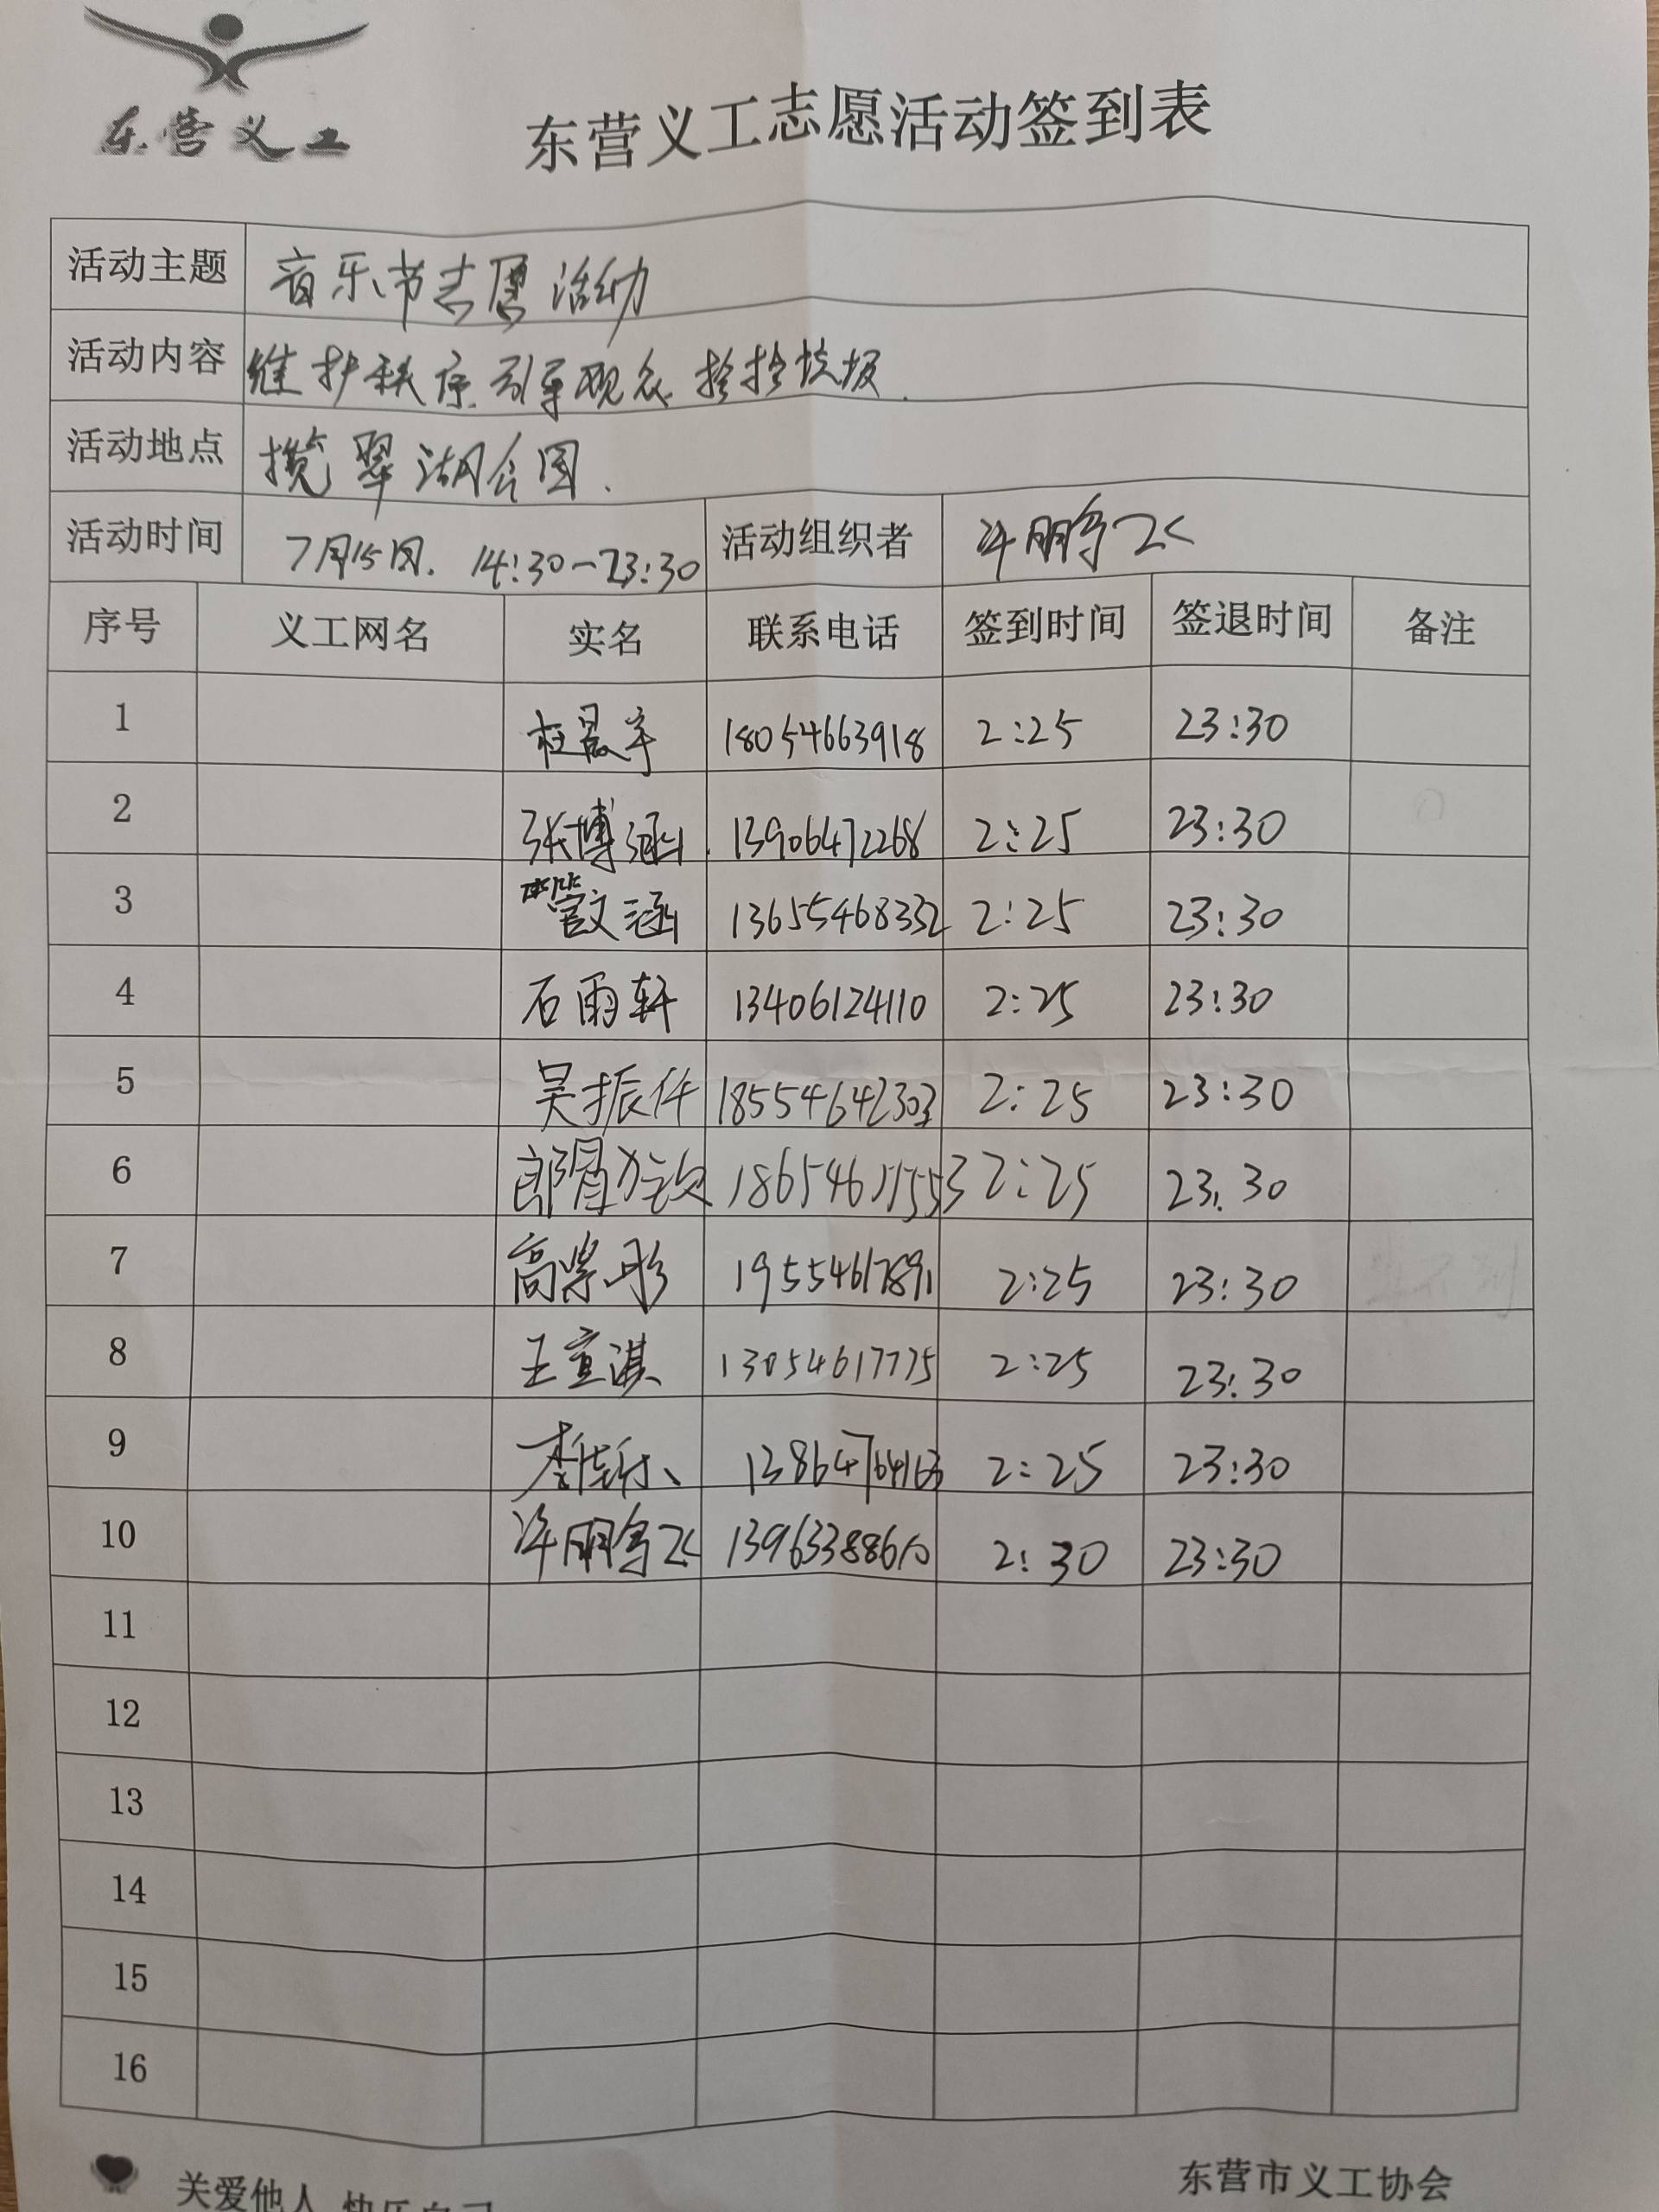 东营义工
东营义工志愿活动签到表
活动主题 音乐节志愿活动
活动内容 维护秩序 引导观众 捡拾垃圾.
活动地点 揽翠湖公园.
活动时间 7月15日. 14:30-23:30 活动组织者 许鹏飞
序号 义工网名 实名 联系电话 签到时间 签退时间 备注
1 杜晨宇 18054663918 2:25 23:30
2 张博涵 13906472268 2:25 23:30
3 管文涵 13655468332 2:25 23:30
4 石雨轩 13406124110 2:25 23:30
5 吴振仟 2:25 23:30
6 2:25 23:30
7 高紫彤 19554617891 2:25 23:30
8 王宣淇 13054617775 2:25 23:30
9 13864764163 2:25 23:30
10 许鹏飞 13963388610 2:30 23:30
11
12
13
14
15
16
关爱他人 快乐自己
东营市义工协会